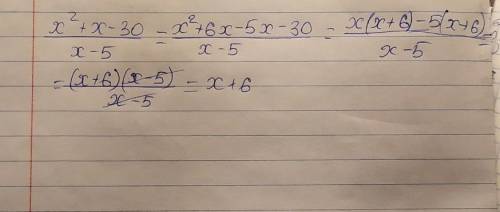 (x²+x-30)/(x-5) = (x²+6x-5x-30)/(x-5) = (x(x+6)-5(x+6))/(x-5) =
= ((x+6)(x-5))/(x-5) = x+6